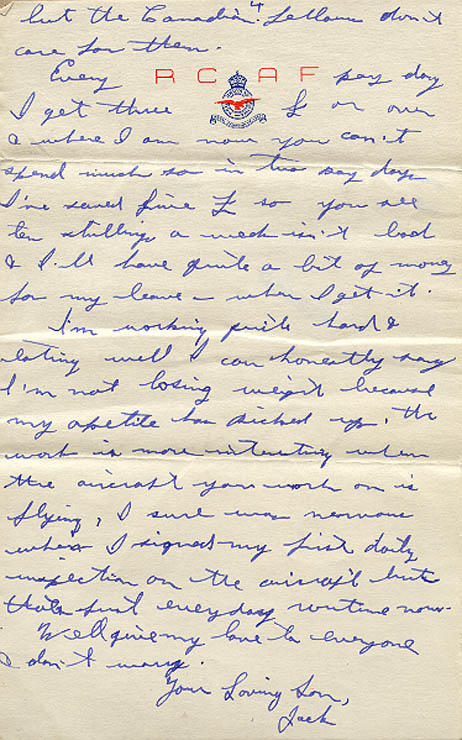 but the Canadian fellows don't
care for them.
Every RCAF pay day
I get three £ or over
& where I am now you can't
spend much so in two pay days
I've saved five £ so you see
ten shillings a week isn't bad
& I'll have quite a bit of money
for my leave - when I get it.
I'm working quite hard &
eating well I can honestly say
I'm not losing weight because
my apetite has picked up. The
work is more interesting when
the aircraft you work on is
flying, I sure was nervous
when I signed my first daily
inspection on the aircraft but
that's just everyday routine now.
Well give my love to everyone
& don't worry.
Your Loving Son,
Jack